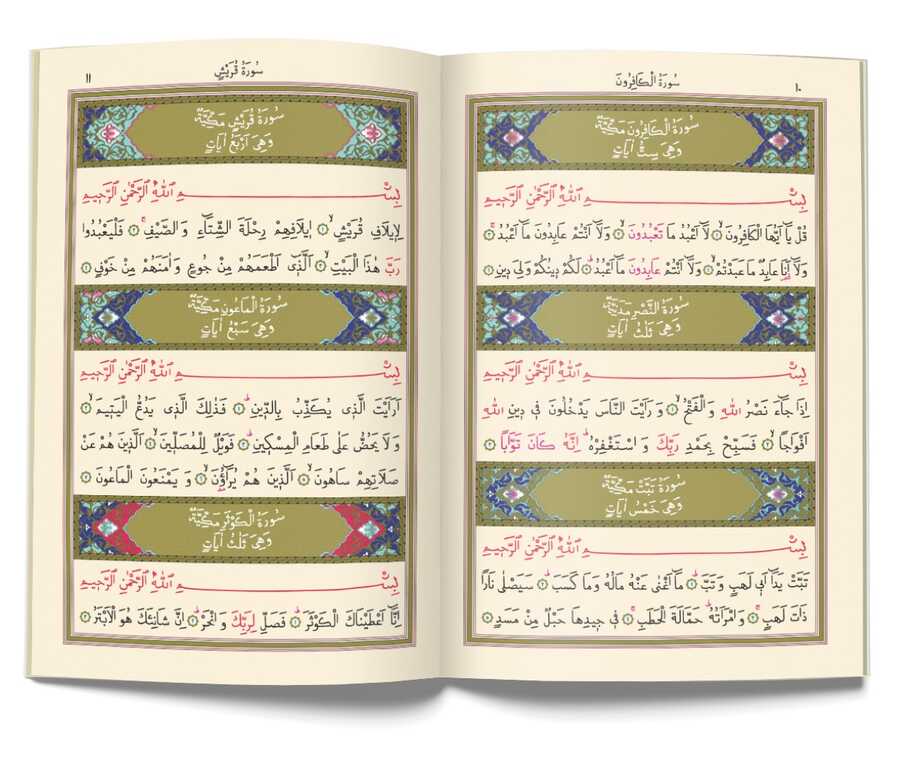 سُورَةُ الْكَافِرُونَ
١٠
سُورَةُ الْكَافِرُونَ مَكِّيَّةٌ
وَهِيَ سِتُّ اٰيَاتٍ
بِسْمِ اللّٰهِ الرَّحْمٰنِ الرَّحِيمِ
قُلْ يَٓا اَيُّهَا الْكَافِرُونَۙ ۝ لَٓا اَعْبُدُ مَا تَعْبُدُونَۙ ۝ وَلَٓا اَنْتُمْ عَابِدُونَ مَٓا اَعْبُدُۚ ۝
وَلَٓا اَنَا۬ عَابِدٌ مَا عَبَدْتُمْۙ ۝ وَلَٓا اَنْتُمْ عَابِدُونَ مَٓا اَعْبُدُۜ ۝ لَكُمْ دِينُكُمْ وَلِيَ دِينِ ۝
سُورَةُ النَّصْرِ مَدَنِيَّةٌ
وَهِيَ ثَلٰثُ اٰيَاتٍ
بِسْمِ اللّٰهِ الرَّحْمٰنِ الرَّحِيمِ
اِذَا جَٓاءَ نَصْرُ اللّٰهِ وَالْفَتْحُۙ ۝ وَرَاَيْتَ النَّاسَ يَدْخُلُونَ فِي دِينِ اللّٰهِ
اَفْوَاجًاۙ ۝ فَسَبِّحْ بِحَمْدِ رَبِّكَ وَاسْتَغْفِرْهُۜ اِنَّهُ كَانَ تَوَّابًا ۝
سُورَةُ تَبَّتْ مَكِّيَّةٌ
وَهِيَ خَمْسُ اٰيَاتٍ
بِسْمِ اللّٰهِ الرَّحْمٰنِ الرَّحِيمِ
تَبَّتْ يَدَٓا اَبِي لَهَبٍ وَتَبَّۜ ۝ مَٓا اَغْنٰى عَنْهُ مَالُهُ وَمَا كَسَبَۜ ۝ سَيَصْلٰى نَارًا
ذَاتَ لَهَبٍۚ ۝ وَامْرَاَتُهُۜ حَمَّالَةَ الْحَطَبِۚ ۝ فِي جِيدِهَا حَبْلٌ مِنْ مَسَدٍ ۝
سُورَةُ قُرَيْشٍ
١١
سُورَةُ قُرَيْشٍ مَكِّيَّةٌ
وَهِيَ اَرْبَعُ اٰيَاتٍ
بِسْمِ اللّٰهِ الرَّحْمٰنِ الرَّحِيمِ
لِاِيلَافِ قُرَيْشٍۙ ۝ اِيلَافِهِمْ رِحْلَةَ الشِّتَٓاءِ وَالصَّيْفِۚ ۝ فَلْيَعْبُدُوا
رَبَّ هٰذَا الْبَيْتِۙ ۝ اَلَّذِٓي اَطْعَمَهُمْ مِنْ جُوعٍ وَاٰمَنَهُمْ مِنْ خَوْفٍ ۝
سُورَةُ الْمَاعُونِ مَكِّيَّةٌ
وَهِيَ سَبْعُ اٰيَاتٍ
بِسْمِ اللّٰهِ الرَّحْمٰنِ الرَّحِيمِ
اَرَاَيْتَ الَّذِي يُكَذِّبُ بِالدِّينِۜ ۝ فَذٰلِكَ الَّذِي يَدُعُّ الْيَتِيمَۙ ۝
وَلَا يَحُضُّ عَلٰى طَعَامِ الْمِسْكِينِۜ ۝ فَوَيْلٌ لِلْمُصَلِّينَۙ ۝ اَلَّذِينَ هُمْ عَنْ
صَلَاتِهِمْ سَاهُونَۙ ۝ اَلَّذِينَ هُمْ يُرَٓاؤُ۫نَۙ ۝ وَيَمْنَعُونَ الْمَاعُونَ ۝
سُورَةُ الْكَوْثَرِ مَكِّيَّةٌ
وَهِيَ ثَلٰثُ اٰيَاتٍ
بِسْمِ اللّٰهِ الرَّحْمٰنِ الرَّحِيمِ
اِنَّٓا اَعْطَيْنَاكَ الْكَوْثَرَۜ ۝ فَصَلِّ لِرَبِّكَ وَانْحَرْۜ ۝ اِنَّ شَانِئَكَ هُوَ الْاَبْتَرُ ۝